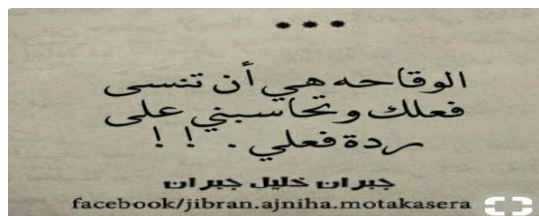 الوقاحه هي أن تنسى
فعلك وتحاسبني على
ردة فعلي . ! !
جبران خليل جبران
facebook/jibran.ajniha.motakasera